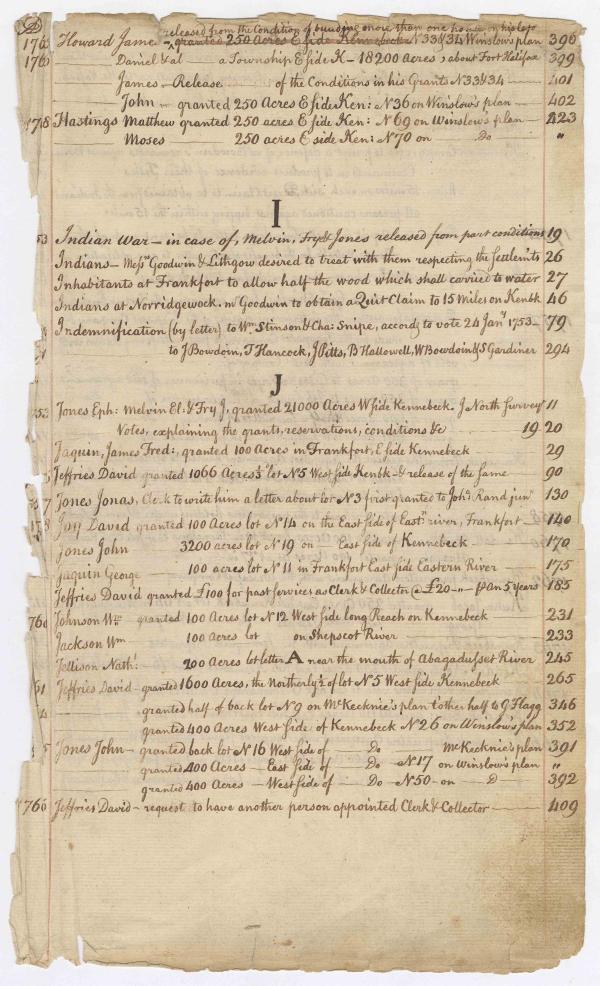 released from the Condition of building more than one house on his lots
176 Howard Jame granted 250 Acres E side Kennebeck N33&34 Winslow's plan 396
176 Daniel & al — a Township E side K — 18200 acres, about Fort Halifax 399
James — Release of the Conditions in his Grants N33&34 — 401
John — granted 250 Acres E side Ken: N36 on Winslow's plan — 402
1768 Hastings Matthew granted 250 acres E side Ken: N 69 on Winslow's plan — 423
Moses 250 acres E side Ken: N70 on Do "
I
53 Indian War — in case of, Melvin, Fry & Jones released from part conditions 19
Indians — Messrs Goodwin & Lithgow desired to treat with them respecting the Settlemts 26
Inhabitants at Frankfort to allow half the wood which shall carried to water 27
Indians at Norridgewock. mr Goodwin to obtain a Quit Claim to 15 Miles on Kenbk 46
Indemnification (by letter) to Wm Stinson & Cha: Snipe, accordg to vote 24 Jany 1753 — 79
to J Bowdoin, T Hancock, J Pitts, B Hallowell, W Bowdoin & S Gardiner 294
J
53 Jones Eph: Melvin El: & Fry J, granted 21000 Acres W side Kennebeck. J North Surveyr 11
Notes, explaining the grants, reservations, conditions &c 19 20
Jaquin, James Fred:, granted 100 Acres in Frankfort, E side Kennebeck 29
Jeffries David granted 1066 Acres ⅓ lot N5 West side Kenbk — & release of the same 90
7 Jones Jonas, Clerk to write him a letter about lot N3 first granted to Johs Rand junr 130
Joy David granted 100 Acres lot N14 on the East side of Eastn river, Frankfort — 140
Jones John 3200 acres lot N19 on East side of Kennebeck 170
Jaquin George 100 acres lot N11 in Frankfort East side Eastern River — 175
Jeffries David granted £100 for past services as Clerk & Collector @ £20 „ — pr An 5 years 185
760 Johnson Wm granted 100 Acres lot N12 West side long Reach on Kennebeck 231
Jackson Wm 100 Acres lot on Shepscot River 233
Jellison Nathl: 200 Acres lot letter A near the mouth of Abagadusset River 245
61 Jeffries David — granted 1600 Acres, the Northerly ½ of lot N5 West side Kennebeck 265
granted half of back lot N9 on McKecknie's plan t'other half to G Flagg 346
granted 400 Acres West side of Kennebeck N26 on Winslow's plan 352
5 Jones John — granted back lot N16 West side of — Do McKecknie's plan 391
granted 400 Acres — East side of — Do — N17 on Winslow's plan "
granted 400 Acres — West side of — Do — N50 — on — D — 392
766 Jeffries David — request to have another person appointed Clerk & Collector — 409